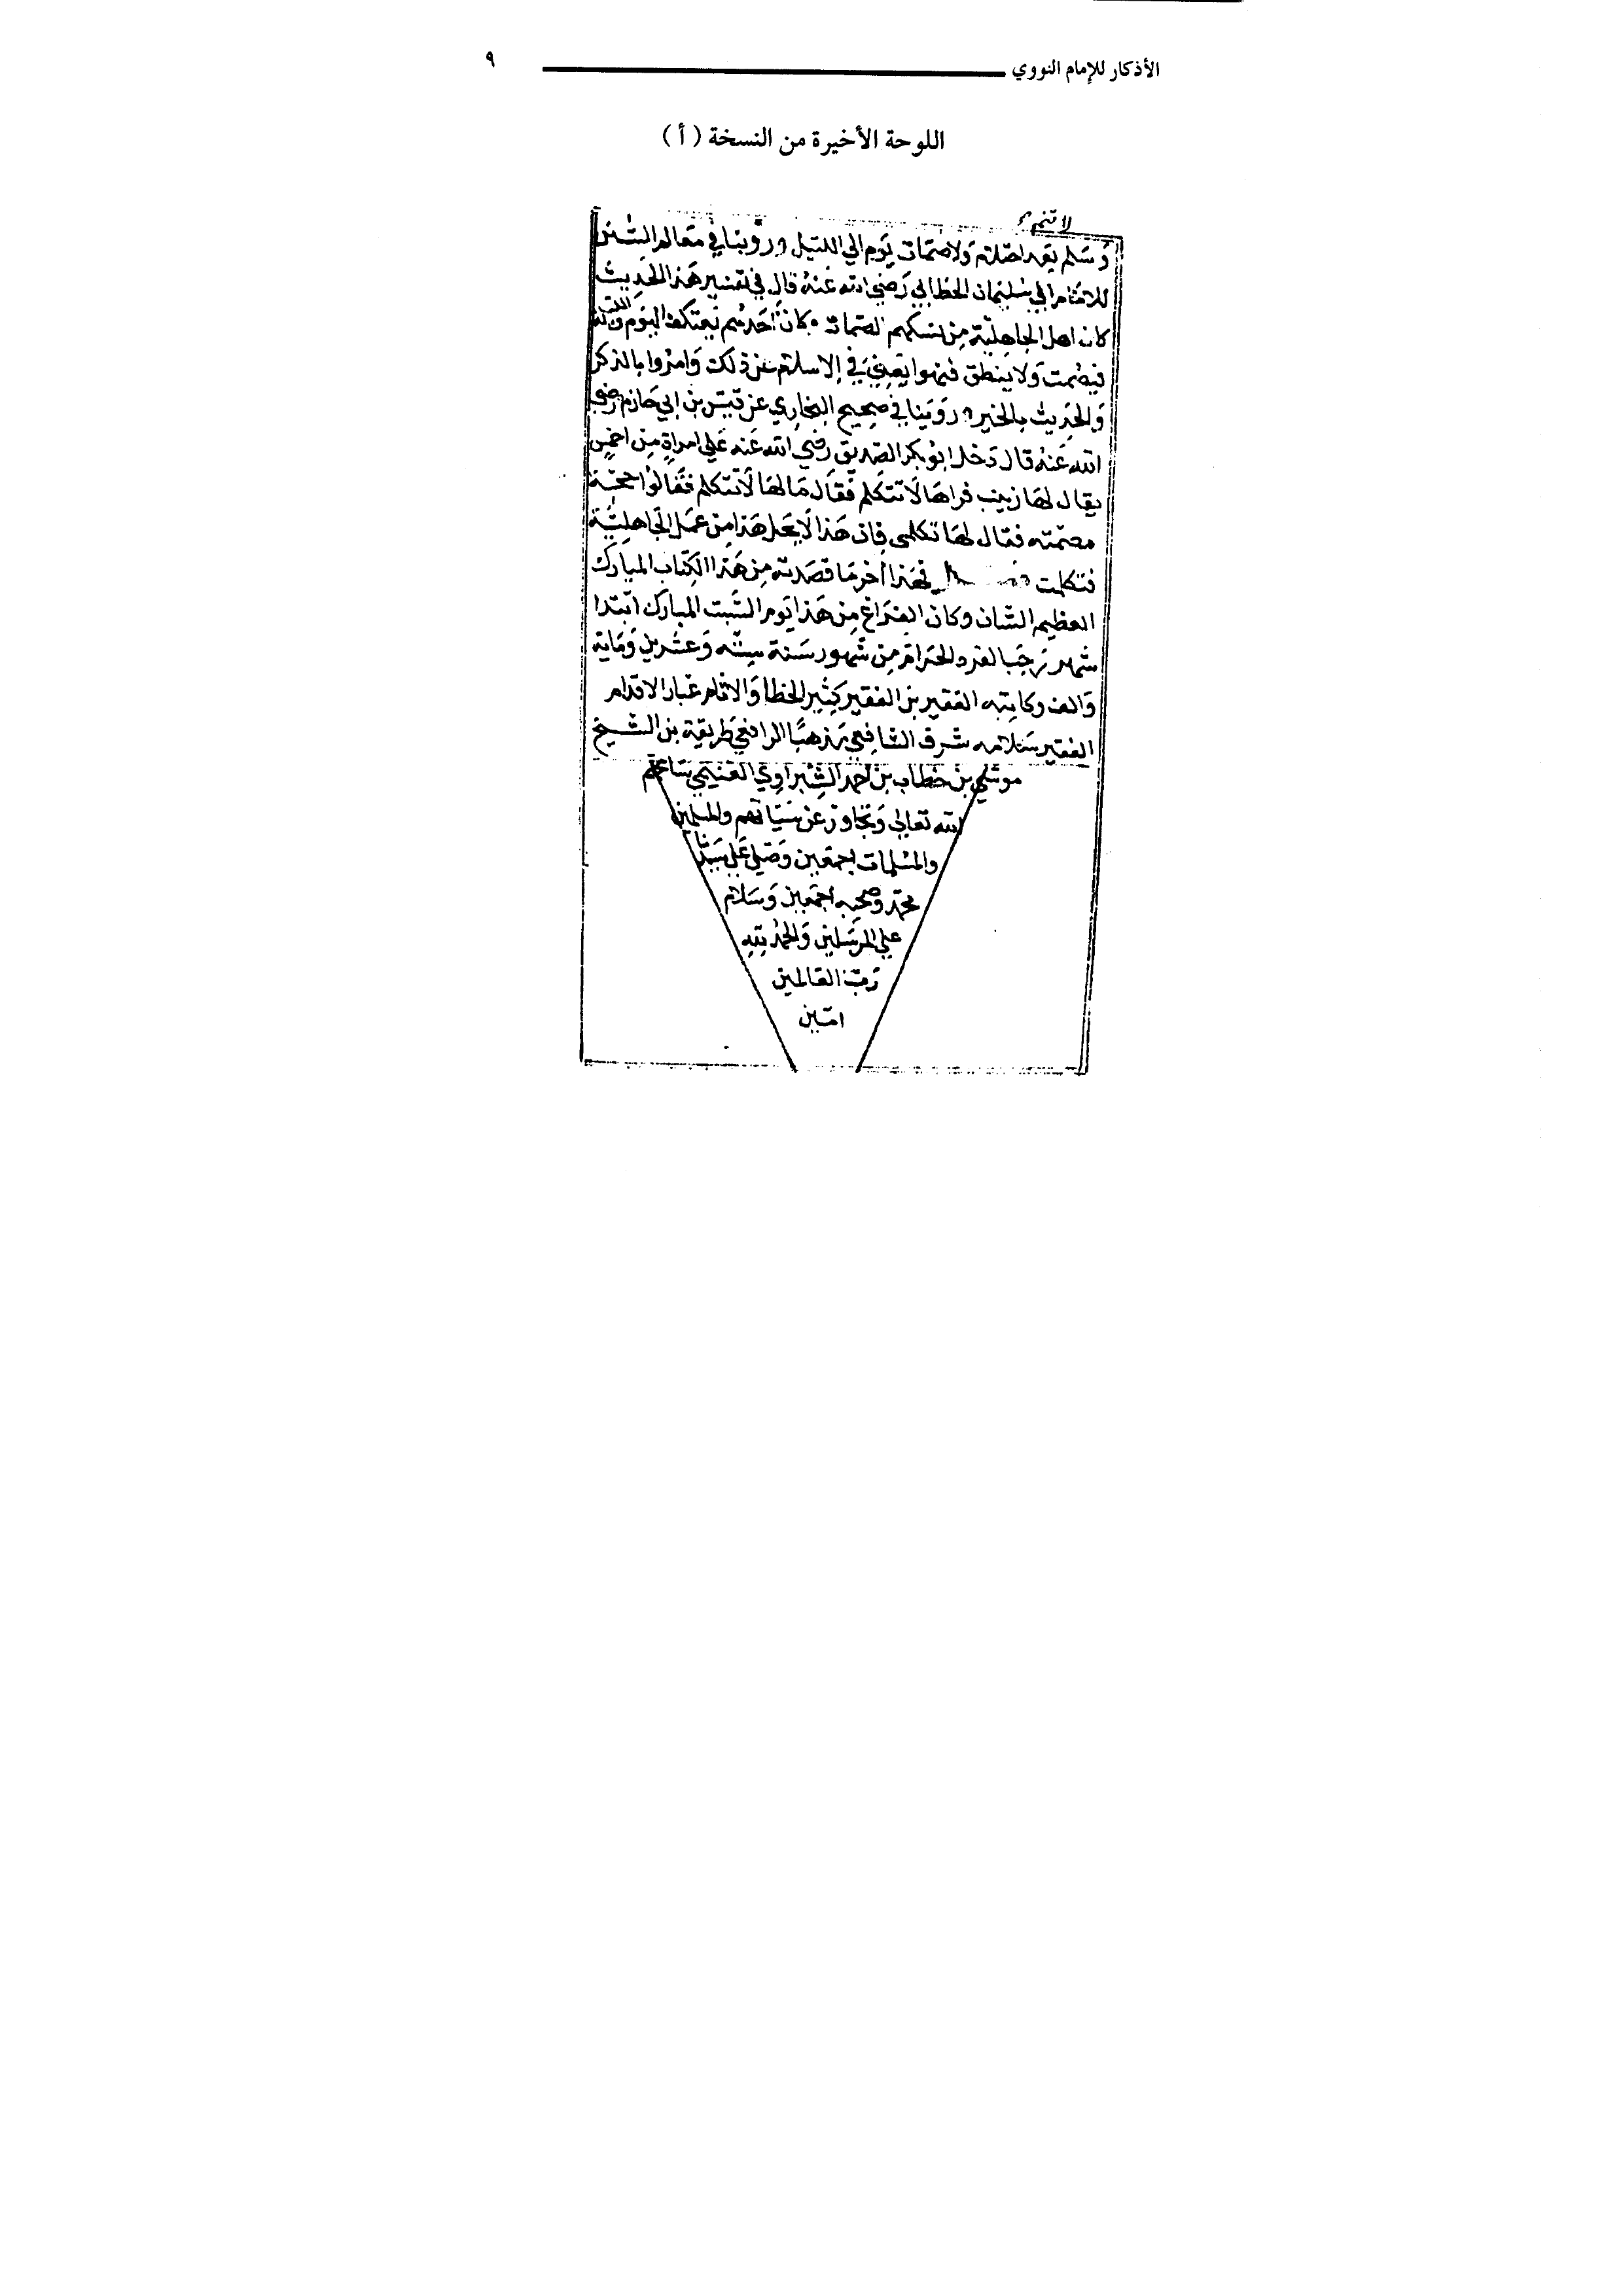 الأذكار للإمام النووي ٩
اللوحة الأخيرة من النسخة ( أ )
وسلم بعد احتلام ولا صمات يوم الي الليل وروينا في معالم السنن
للامام ابي سليمان الخطابي رضي الله عنه قال في تفسير هذا الحديث
كان اهل الجاهلية من نسكهم الصمات وكان احدهم يعتكف اليوم والليلة
فيصمت ولا ينطق فنهوا يعني في الاسلام عن ذلك وامروا بالذكر
والحديث بالخير روينا في صحيح البخاري عن قيس بن ابي حازم رضي
الله عنه قال دخل ابو بكر الصديق رضي الله عنه علي امراة من احمس
يقال لها زينب فراها لا تتكلم فقال ما لها لا تتكلم فقالوا حجة
مصمتة فقال لها تكلمي فان هذا لا يحل هذا من عمل الجاهلية
فتكلمت فهذا اخر ما قصدته من هذا الكتاب المبارك
العظيم الشان وكان الفراغ من هذا يوم السبت المبارك ابتدا
شهر رجب الفرد الحرام من شهور سنة ستة وعشرين وماية
والف وكاتبه الفقير بن الفقير كثير الخطا والاثام غبار الاقدام
الفقير سلامه شرف الشافعي مذهبا الرافعي طريقة بن الشيخ
موسي بن خطاب بن احمد الشبراوي الغنيمي
الله تعالي وتجاوز عن سيئاتهم والمسلمين
والمسلمات اجمعين وصلي علي سيدنا
محمد وصحبه اجمعين وسلام
علي المرسلين والحمد لله
رب العالمين
امين